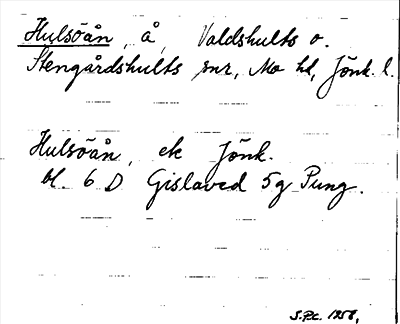 Hulsöån, å, Valdshults o.
Stengårdshults snr, Mo hd, Jönk. l.
Hulsöån, ek Jönk.
bl. 6 D Gislaved 5g Pung.
S.P.C. 1958,